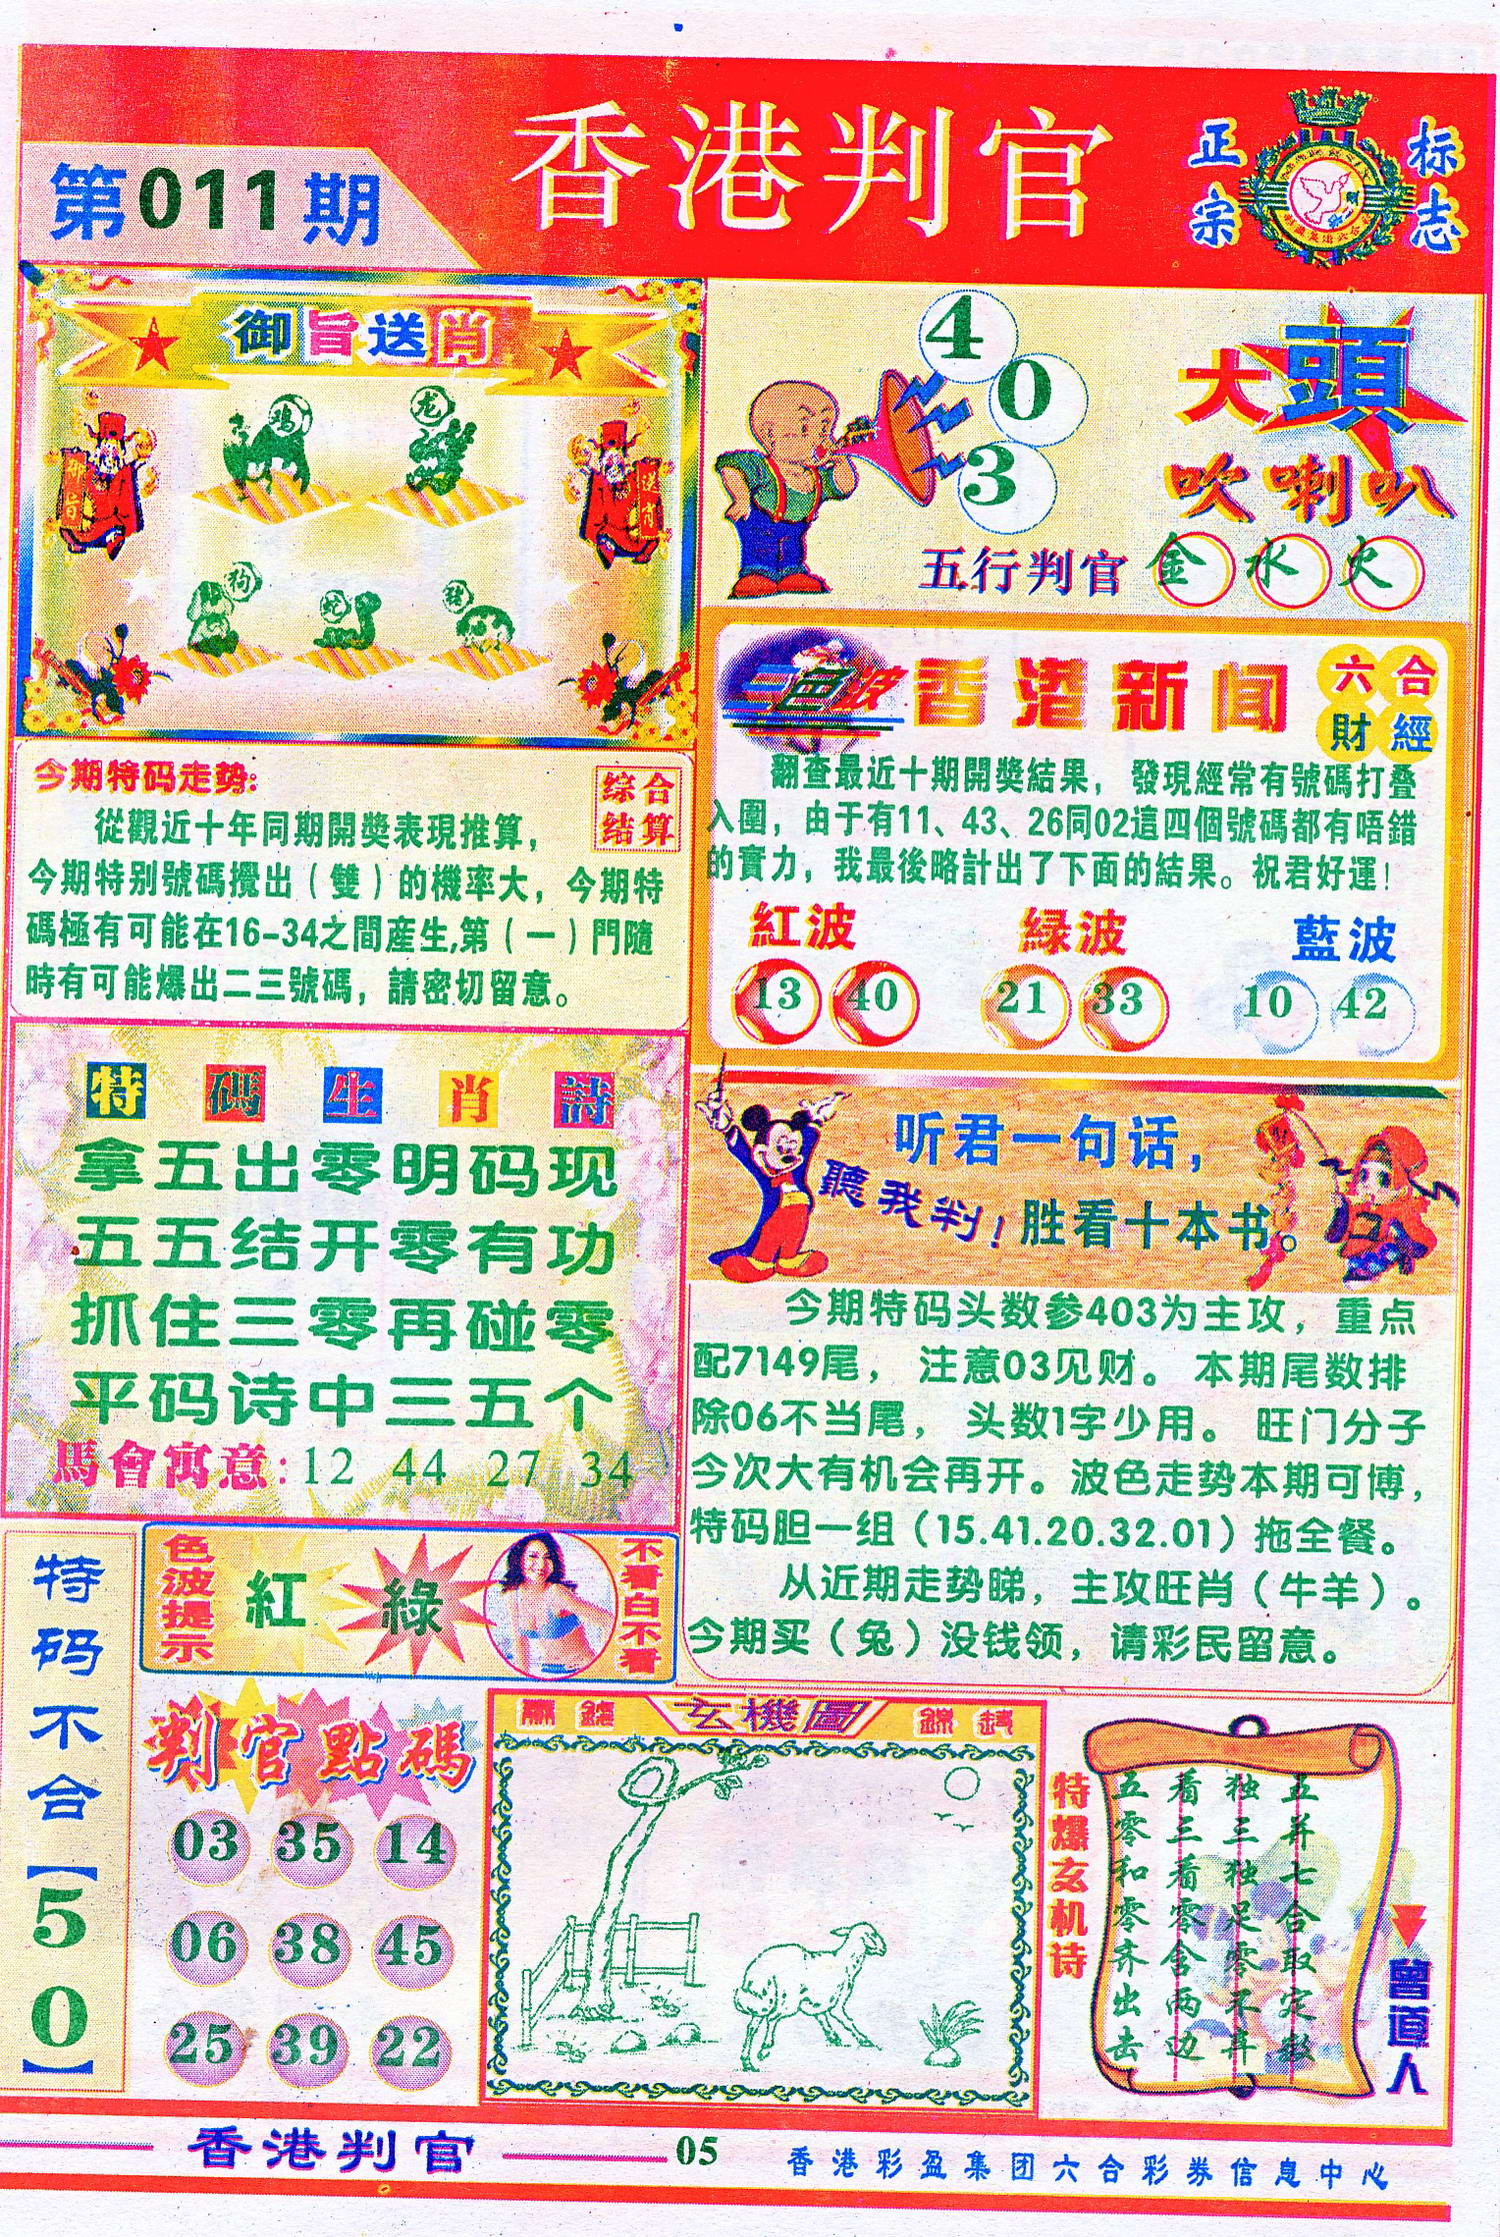 香港判官
第011期
正宗
标志
御旨送肖
鸡
龙
御旨
送肖
狗
蛇
猪
4
0
3
大頭
吹喇叭
五行判官 金 水 火
今期特码走势:
综合
结算
從觀近十年同期開獎表現推算，
今期特别號碼攪出（雙）的機率大，今期特
碼極有可能在16-34之間産生,第（一）門隨
時有可能爆出二三號碼，請密切留意。
三色波
香港新闻
六合
財經
翻查最近十期開獎結果，發現經常有號碼打叠
入圍，由于有11、43、26同02這四個號碼都有唔錯
的實力，我最後略計出了下面的結果。祝君好運！
紅波 緑波 藍波
13 40 21 33 10 42
特碼生肖詩
拿五出零明码现
五五结开零有功
抓住三零再碰零
平码诗中三五个
馬會寓意:12 44 27 34
听君一句话，
聽我判！
胜看十本书。
今期特码头数参403为主攻，重点
配7149尾，注意03见财。本期尾数排
除06不当尾，头数1字少用。旺门分子
今次大有机会再开。波色走势本期可博，
特码胆一组（15.41.20.32.01）拖全餐。
从近期走势睇，主攻旺肖（牛羊）。
今期买（兔）没钱领，请彩民留意。
特码不合【50】
色波提示
紅 綠
不看白不看
判官點碼
03 35 14
06 38 45
25 39 22
玄機圖
特爆玄机诗
五并七合取定数
独三独足零不弃
着三着零含两边
五零和零齐出击
曾道人
香港判官
05
香港彩盈集团六合彩券信息中心